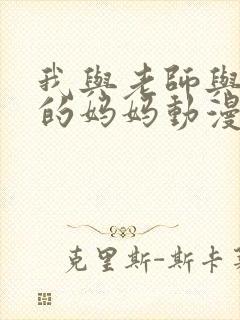 我與老師與
的妈妈動漫
克里斯-斯卡